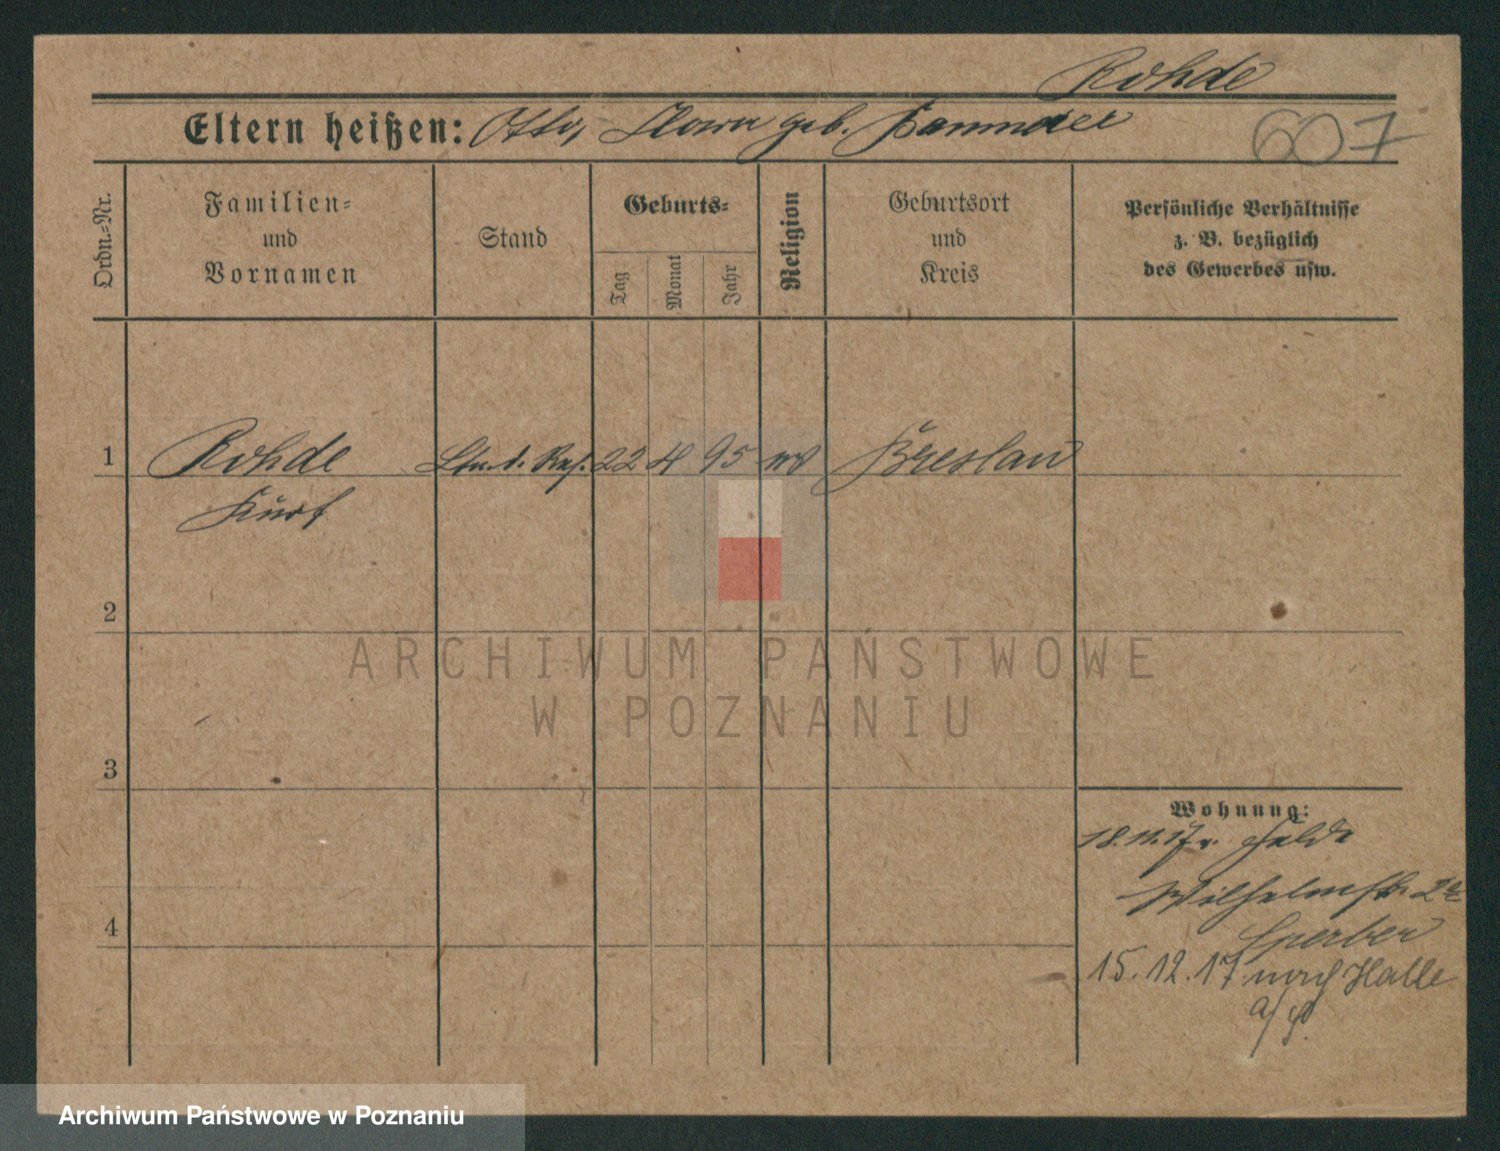 Rohde
Eltern heißen: Otto, geb.
607
Ordn.-Nr.
Familien-
und
Vornamen
Stand
Geburts-
Tag
Monat
Jahr
Religion
Geburtsort
und
Kreis
Persönliche Verhältnisse
z. B. bezüglich
des Gewerbes usw.
1 Rohde Ltn. d. Res. 22 4 95 ev Breslau
Kurt
2
ARCHIWUM PAŃSTWOWE
W POZNANIU
3
Wohnung:
18.11.17 v. Felde
Wilhelmstr. 22
Sperber
4
15.12.17 nach Halle
a/S
Archiwum Państwowe w Poznaniu